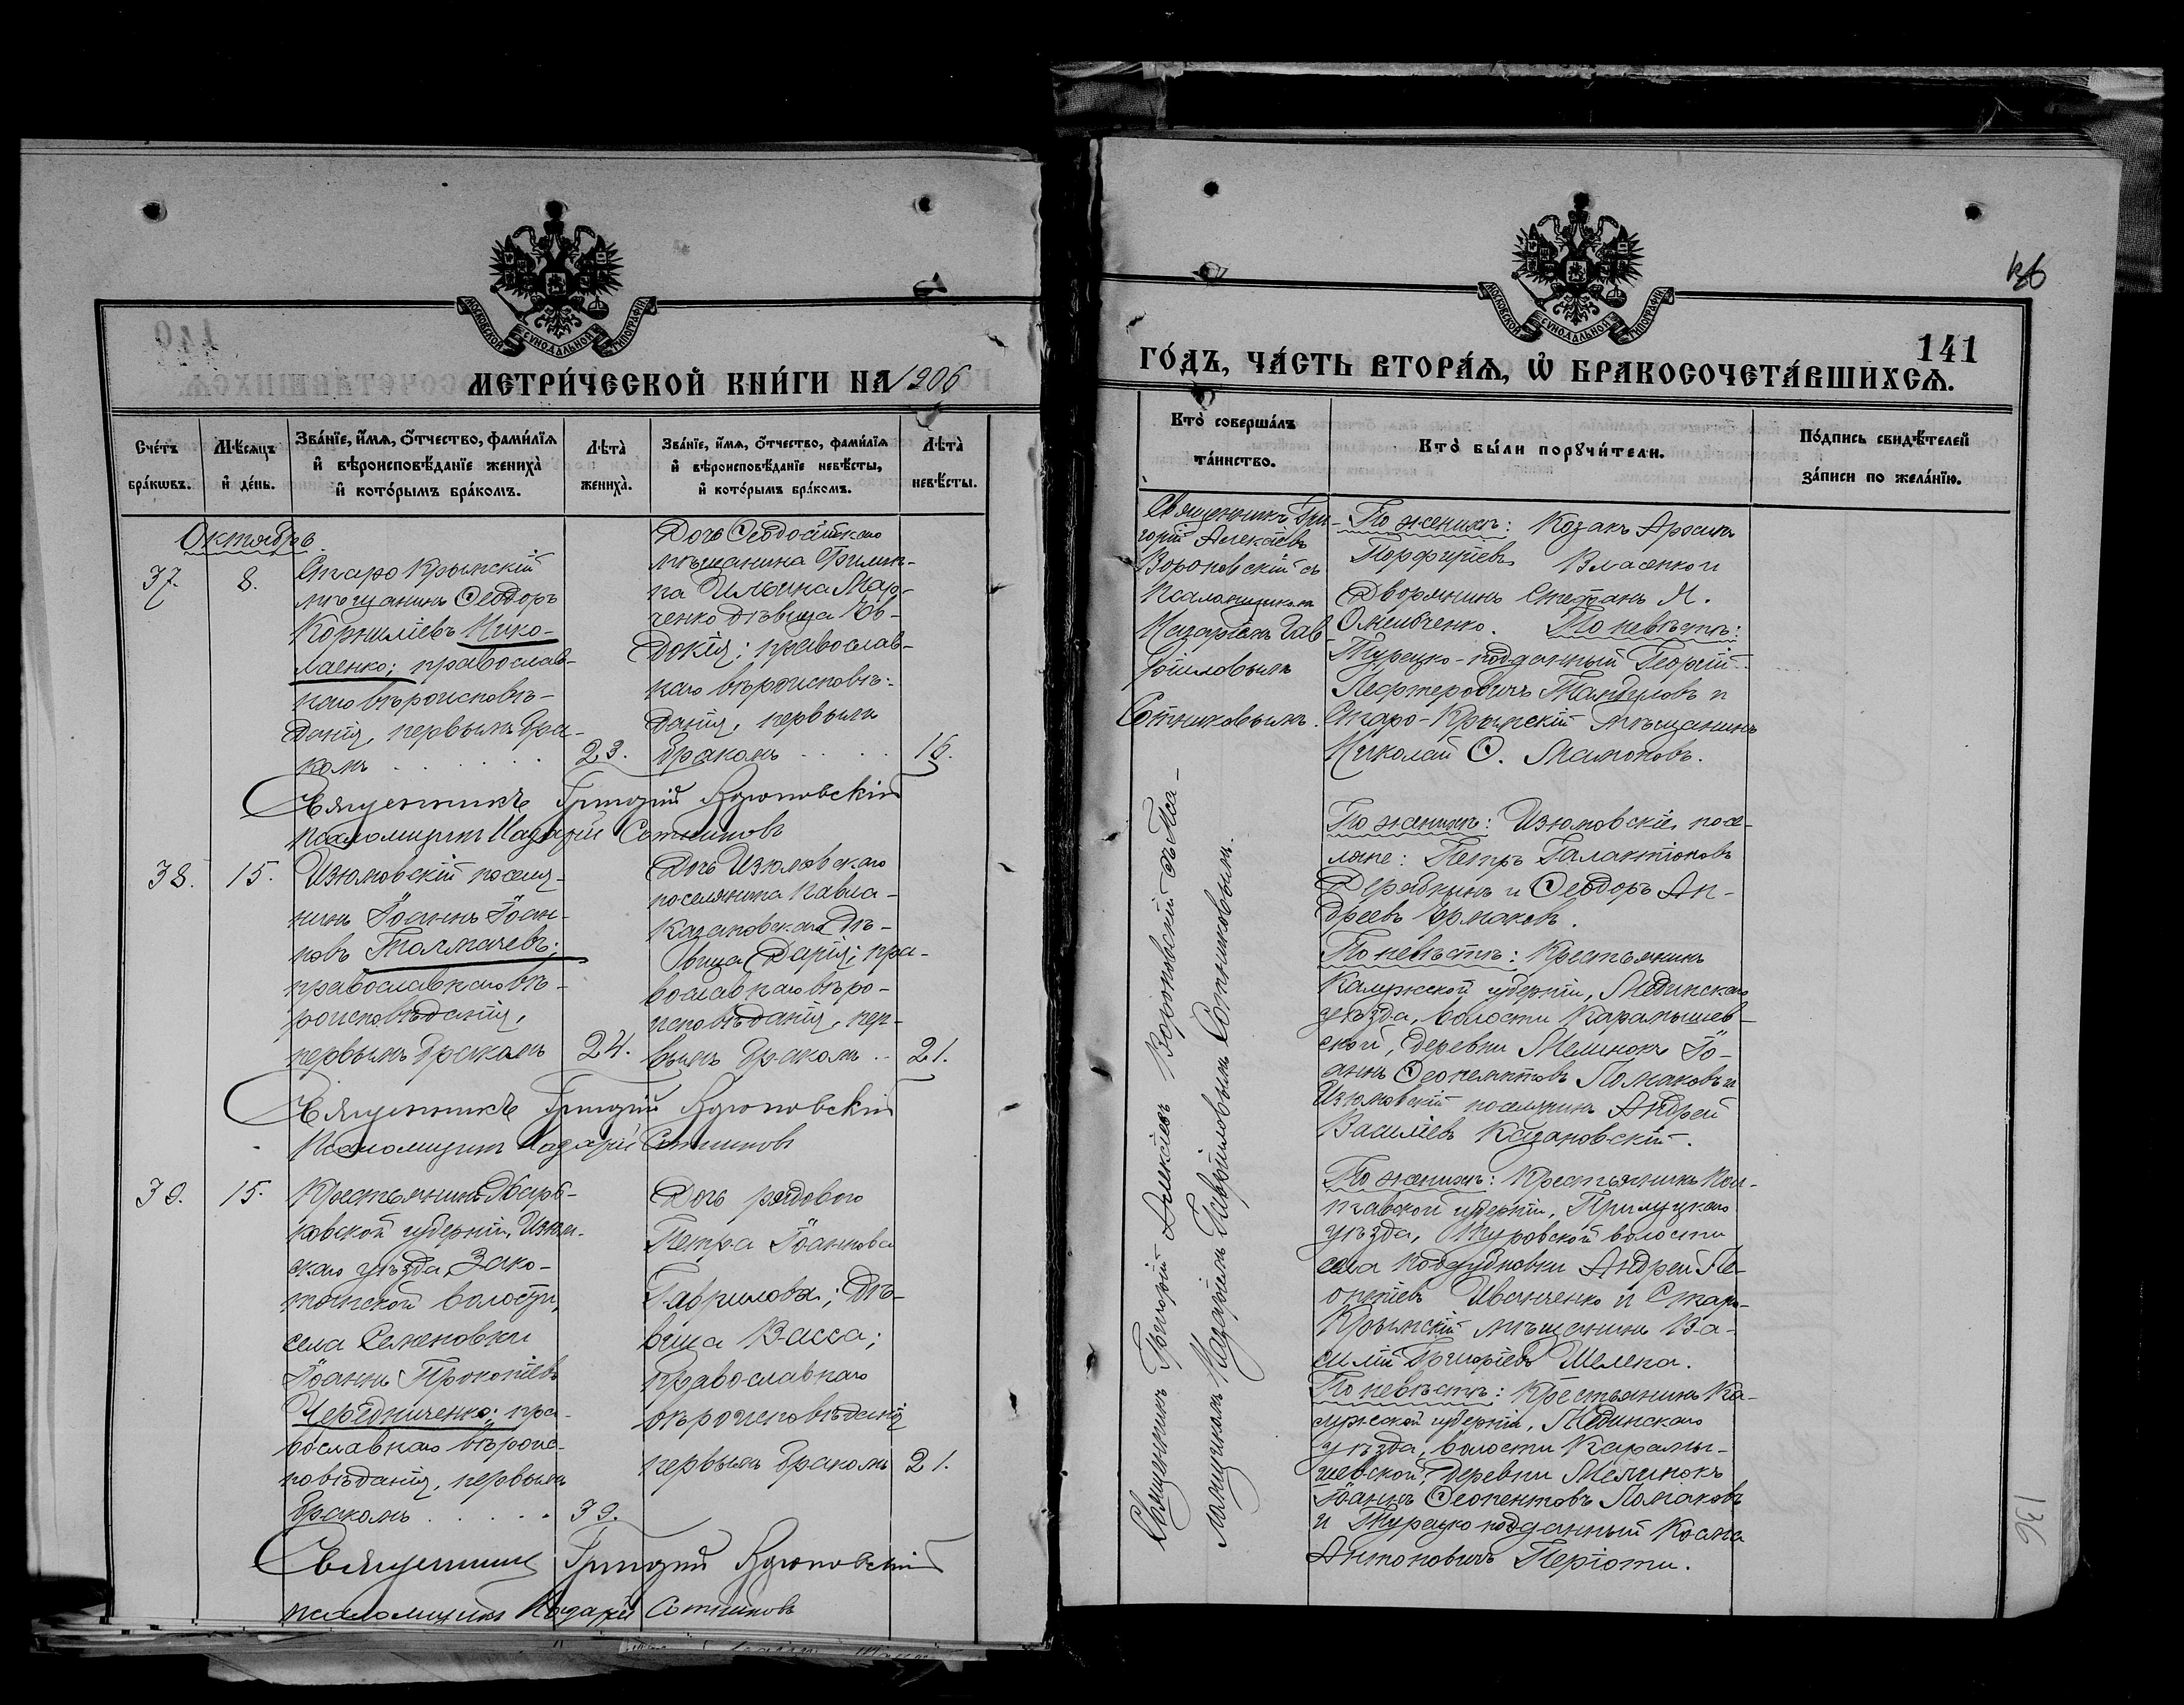 МОСКОВСКОЙ СѴНОДАЛЬНОЙ ТИПОГРАФІИ
МЕТРИ́ЧЕСКОЙ КНИ́ГИ НА 1906
Сче́тъ бра́кѡвъ.
Мѣ́сяцъ и҆ де́нь.
Зва́нїе, и҆́мѧ, ѻ҆́тчество, фами́лїѧ
и҆ вѣроисповѣ́данїе жениха̀
и҆ кото́рымъ бра́комъ.
Лѣта̀ жениха̀.
Зва́нїе, и҆́мѧ, ѻ҆́тчество, фами́лїѧ
и҆ вѣроисповѣ́данїе невѣ́сты,
и҆ кото́рымъ бра́комъ.
Лѣта̀ невѣ́сты.
Октябрь.
37. 8.
Старо Крымскій
мѣщанинъ Ѳеодоръ
Корниліевъ Нико-
лаенко; православ-
наго вѣроисповѣ-
данія, первымъ бра-
комъ 23.
Дочь Ѳеодосійскаго
мѣщанина Филип-
па Ильина Мар-
ченко дѣвица Ев-
докія; православ-
наго вѣроисповѣ-
данія, первымъ
бракомъ 16.
Священникъ Григорій Вороновскій
псаломщикъ Назарій Сотниковъ
38. 15.
Изюмовскій поселя-
нинъ Іоаннъ Іоан-
новъ Толмачевъ;
православнаго вѣ-
роисповѣданія,
первымъ бракомъ 24.
Дочь Изюмовскаго
поселянина Павла
Казановскаго дѣ-
вица Дарія; пра-
вославнаго вѣро-
исповѣданія, пер-
вымъ бракомъ 21.
Священникъ Григорій Вороновскій
Псаломщикъ Назарій Сотниковъ
39. 15.
Крестьянинъ Харь-
ковской губерніи, Изюм-
скаго уѣзда,
волости,
села Семеновки
Іоаннъ Прокопіевъ
Чередниченко; пра-
вославнаго вѣроис-
повѣданія, первымъ
бракомъ 39.
Дочь рядового
Петра Іоаннова
Гаврилова; дѣ-
вица Васса;
православнаго
вѣроисповѣданія
первымъ бракомъ 21.
Священникъ Григорій Вороновскій
псаломщикъ Назарій Сотниковъ
136
МОСКОВСКОЙ СѴНОДАЛЬНОЙ ТИПОГРАФІИ
141
ГО́ДЪ, ЧА́СТЬ ВТОРА́Ѧ, Ѡ҆ БРАКОСОЧЕТА́ВШИХСѦ.
Кто̀ соверша́лъ
та́инство.
Кто̀ бы́ли порꙋчи́тели.
По́дпись свидѣ́телей
за́писи по жела́нїю.
Священникъ Гри-
горій Алексіевъ
Вороновскій съ
Псаломщикомъ
Назаріемъ Гав-
ріиловымъ
Сотниковымъ.
По женихѣ: Козакъ
Порфиріевъ Власенко и
Дворянинъ Степанъ Я.
Омельченко. По невѣстѣ:
Турецко-подданный Георгій
и
Старо-Крымскій мѣщанинъ
Николай Ѳ. Мамоновъ.
Священникъ Григорій Алексіевъ Вороновскій съ Пса-
ломщикомъ Назаріемъ Гавріиловымъ Сотниковымъ.
По женихѣ: Изюмовскіе посе-
ляне: Петръ Галактіоновъ
Дерябкинъ и Ѳеодоръ Ан-
дреевъ Ермаковъ.
По невѣстѣ: Крестьянинъ
Калужской губерніи, Мединскаго
уѣзда, волости Карамышев-
ской, деревни Мелинокъ Іо-
аннъ Ѳеопемптовъ Ломаковъ и
Изюмовскій поселянинъ Андрей
Василіевъ Казановскій.
По женихѣ: Крестьянинъ Пол-
тавской губерніи, Прилуцкаго
уѣзда, волости
села Поддубновки Андрей Ле-
онтіевъ Иванченко и Старо-
Крымскій мѣщанинъ Ва-
силій Григоріевъ Шелека.
По невѣстѣ: Крестьянинъ Ка-
лужской губерніи, Мединскаго
уѣзда, волости Карамы-
шевской, деревни Мелинокъ
Іоаннъ Ѳеопентовъ Ломаковъ
и Турецко подданный Косма
Антоновичъ Періоти.
136